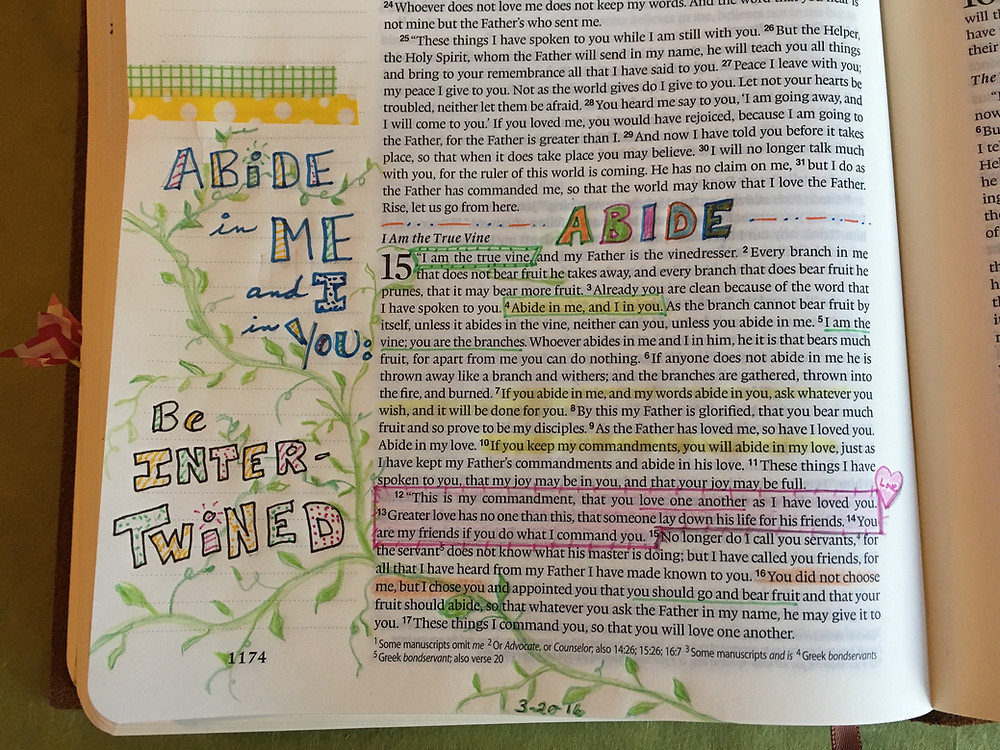 24 Whoever does not love me does not keep my words. And the word that you hear is
not mine but the Father's who sent me.
25 "These things I have spoken to you while I am still with you. 26 But the Helper,
the Holy Spirit, whom the Father will send in my name, he will teach you all things
and bring to your remembrance all that I have said to you. 27 Peace I leave with you;
my peace I give to you. Not as the world gives do I give to you. Let not your hearts be
troubled, neither let them be afraid. 28 You heard me say to you, 'I am going away, and
I will come to you.' If you loved me, you would have rejoiced, because I am going to
the Father, for the Father is greater than I. 29 And now I have told you before it takes
place, so that when it does take place you may believe. 30 I will no longer talk much
with you, for the ruler of this world is coming. He has no claim on me, 31 but I do as
the Father has commanded me, so that the world may know that I love the Father.
Rise, let us go from here.
ABIDE
I Am the True Vine
15 "I am the true vine, and my Father is the vinedresser. 2 Every branch in me
that does not bear fruit he takes away, and every branch that does bear fruit he
prunes, that it may bear more fruit. 3 Already you are clean because of the word that
I have spoken to you. 4 Abide in me, and I in you. As the branch cannot bear fruit by
itself, unless it abides in the vine, neither can you, unless you abide in me. 5 I am the
vine; you are the branches. Whoever abides in me and I in him, he it is that bears much
fruit, for apart from me you can do nothing. 6 If anyone does not abide in me he is
thrown away like a branch and withers; and the branches are gathered, thrown into
the fire, and burned. 7 If you abide in me, and my words abide in you, ask whatever you
wish, and it will be done for you. 8 By this my Father is glorified, that you bear much
fruit and so prove to be my disciples. 9 As the Father has loved me, so have I loved you.
Abide in my love. 10 If you keep my commandments, you will abide in my love, just as
I have kept my Father's commandments and abide in his love. 11 These things I have
spoken to you, that my joy may be in you, and that your joy may be full.
12 "This is my commandment, that you love one another as I have loved you.
13 Greater love has no one than this, that someone lay down his life for his friends. 14 You
are my friends if you do what I command you. 15 No longer do I call you servants,4 for
the servant5 does not know what his master is doing; but I have called you friends, for
all that I have heard from my Father I have made known to you. 16 You did not choose
me, but I chose you and appointed you that you should go and bear fruit and that your
fruit should abide, so that whatever you ask the Father in my name, he may give it to
you. 17 These things I command you, so that you will love one another.
1 Some manuscripts omit me 2 Or Advocate, or Counselor; also 14:26; 15:26; 16:7 3 Some manuscripts and is 4 Greek bondservants
5 Greek bondservant; also verse 20
Love
ABiDE
in ME
and I
in YOU.
Be
INTER-
TWiNED
1174
3-20-16